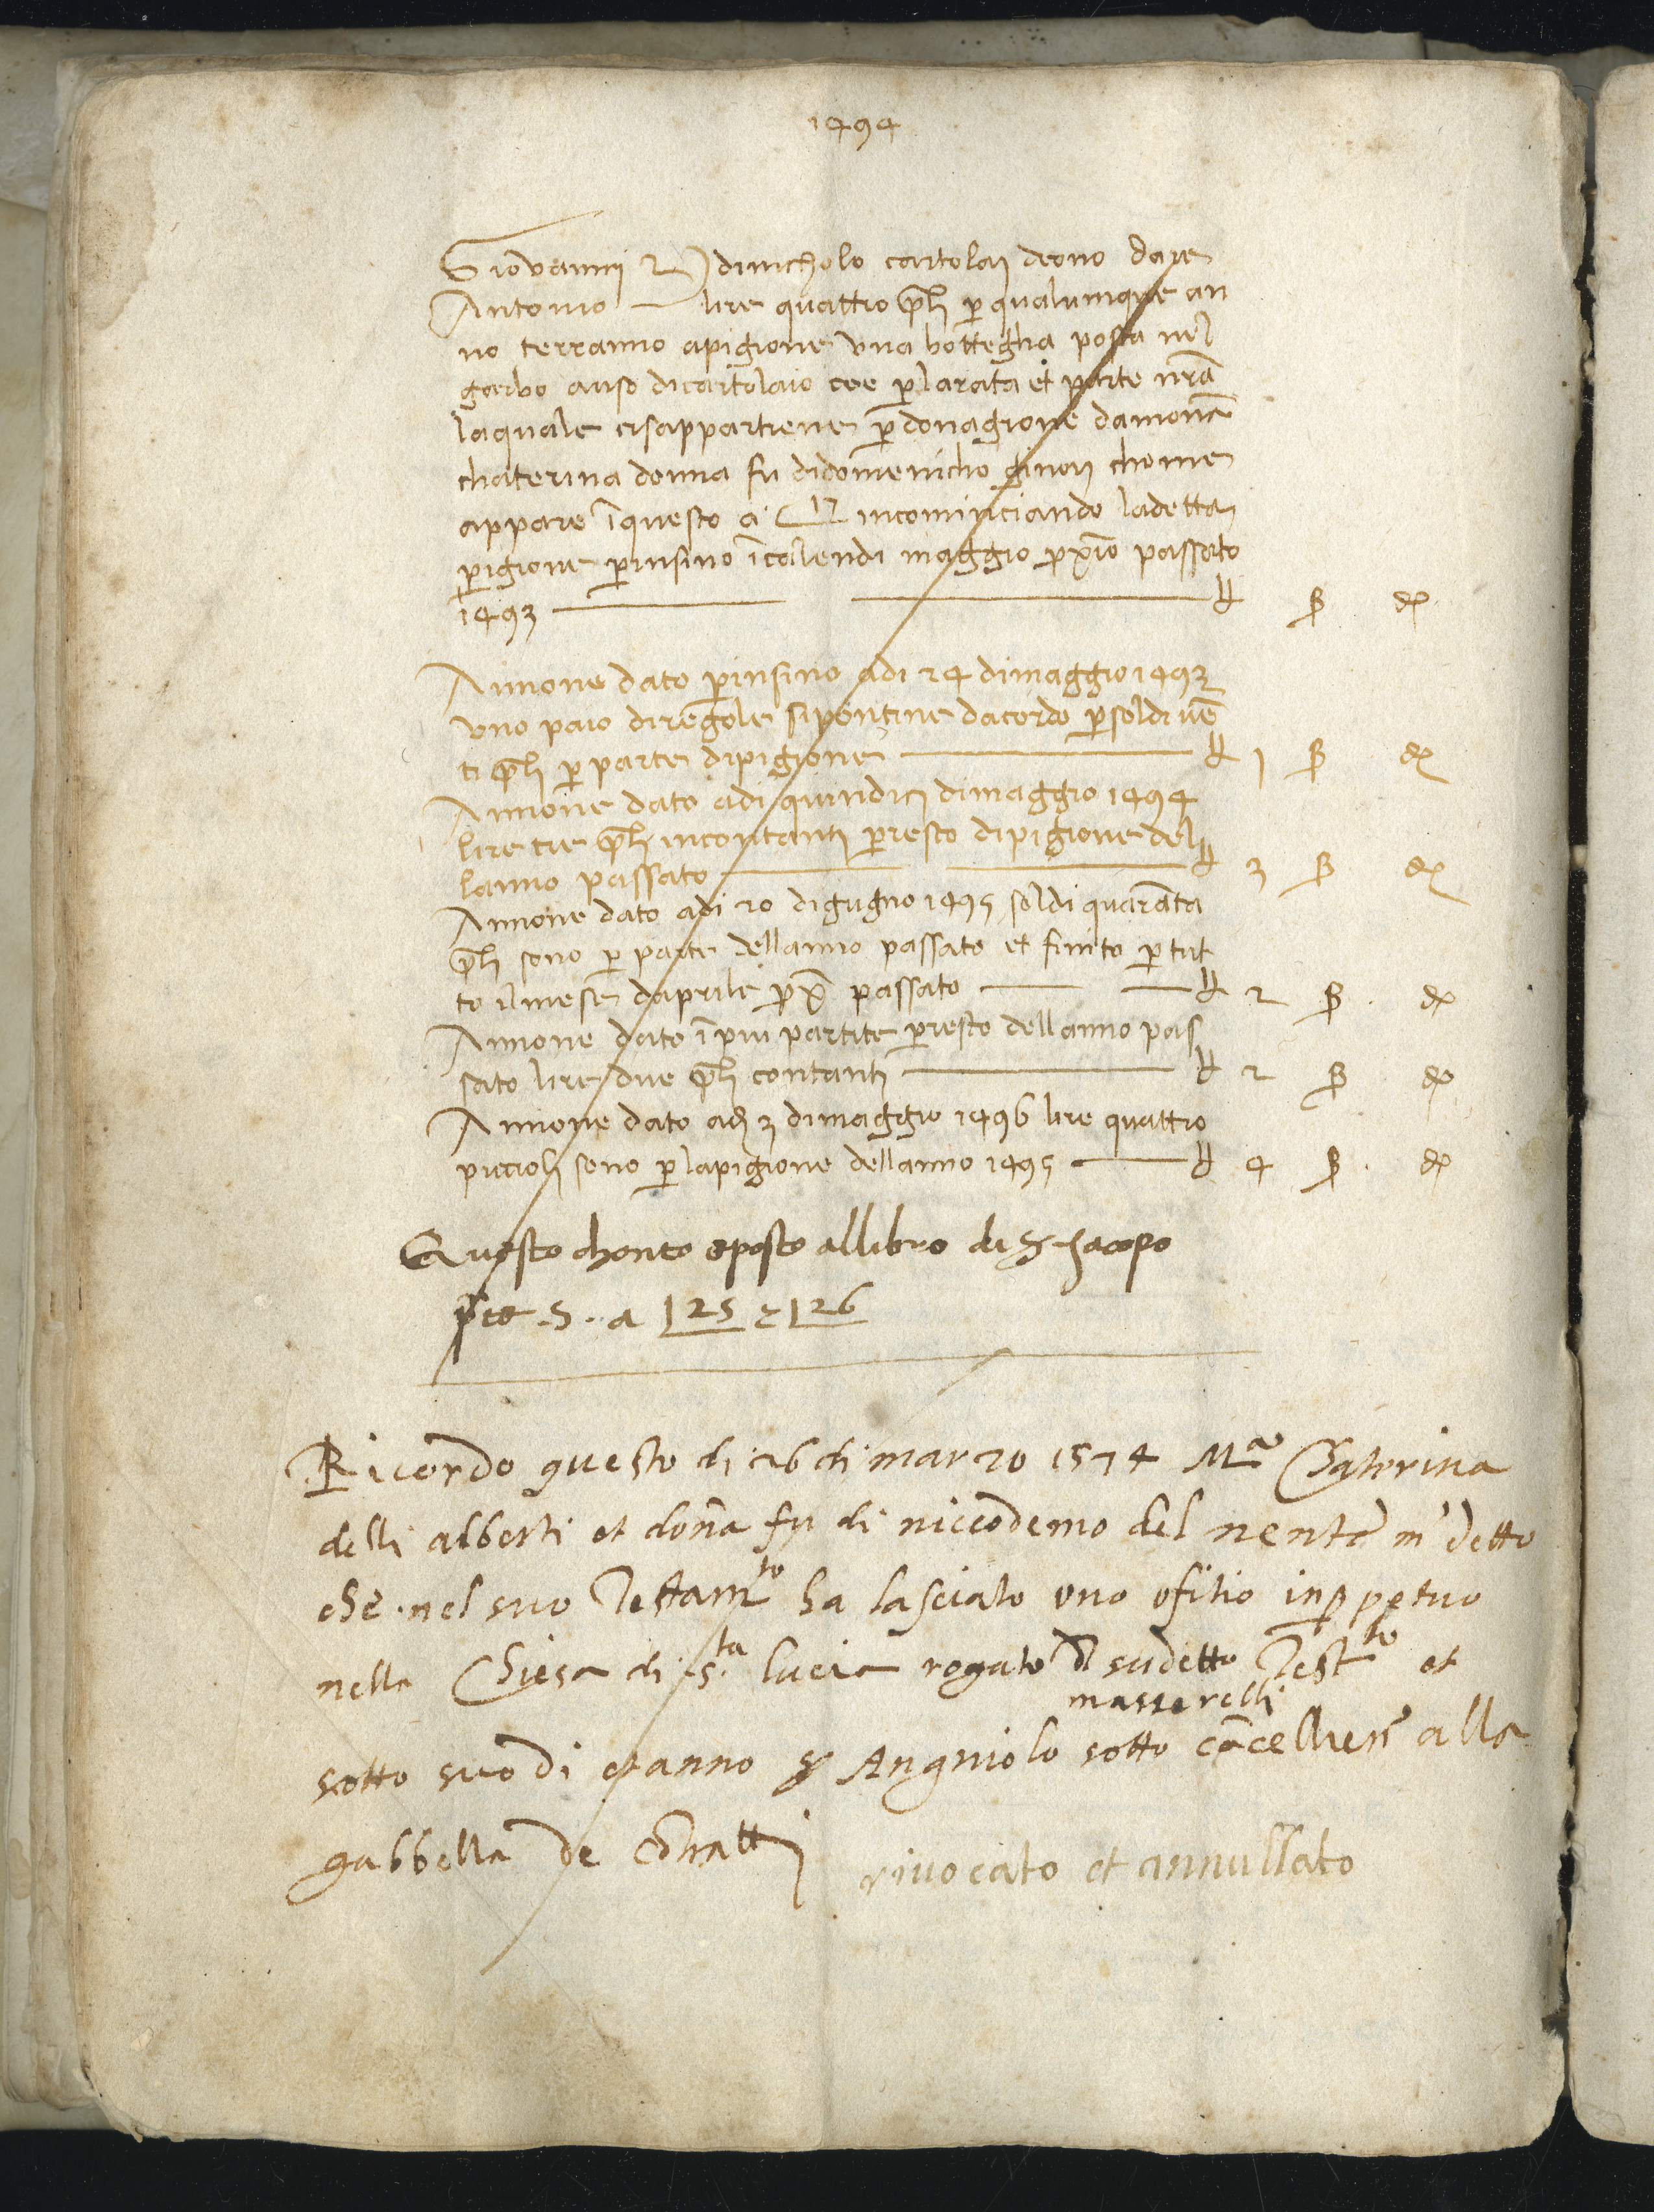 1494
Giovannj z dinicholo cartolaj deono dare
Antonio lire quattro p̄li p̱ qualumque an
no terranno apigione una bottegha posta nel
garbo auso dicartolaio cee p̱ larata et parte nr̄a
laquale cisappartiene p̱ donagione damonā
chaterina donna fu didomenicho ginorj chome
appare ī questo a 12 incominciando ladetta
pigione p̱ insino ī calendi maggio pxīo passato
1493 — ₶ ß ₰
Annone dato p̱ insino adi 24 dimaggio 1493
uno paio di sipontine dacordo p̱ soldi uē
ti p̄li p̱ parte dipigione — ₶ 1 ß ₰
Annone dato adi quindicj dimaggio 1494
lire tre p̄li incontantj p̱ resto dipigione del
lanno passato — ₶ 3 ß ₰
Annone dato adi 20 digugno 1495 soldi quarāta
p̄li sono p̱ parte dellanno passato et finito p̱ tut
to ilmese daprile px̄o passato — ₶ 2 ß ₰
Annone dato ī piu partite p̱ resto dellanno pas
sato lire due p̄li contantj — ₶ 2 ß ₰
Annone dato adj 3 dimaggio 1496 lire quattro
piccioli sono p̱ lapigione dellanno 1495 — ₶ 4 ß ₰
Questo chonto eposto allibro di S Jacopo
S. a 125 e 126
Ricordo questo di 26 di marzo 1574 Mᵃ Chaterina
delli alberti et dōna fu di niccodemo del nente m' detto
che nel suo Testamᵗᵒ ha lasciato uno ofitio inp̱ pp̱etuo
nella Chiesa di sᵗᵃ lucia rogato Dˡ sudetto Testᵗᵒ et
masserelli
sotto suo di et anno sr Angniolo sotto cācellierē alla
gabbella de cōtrattj rivocato et annullato